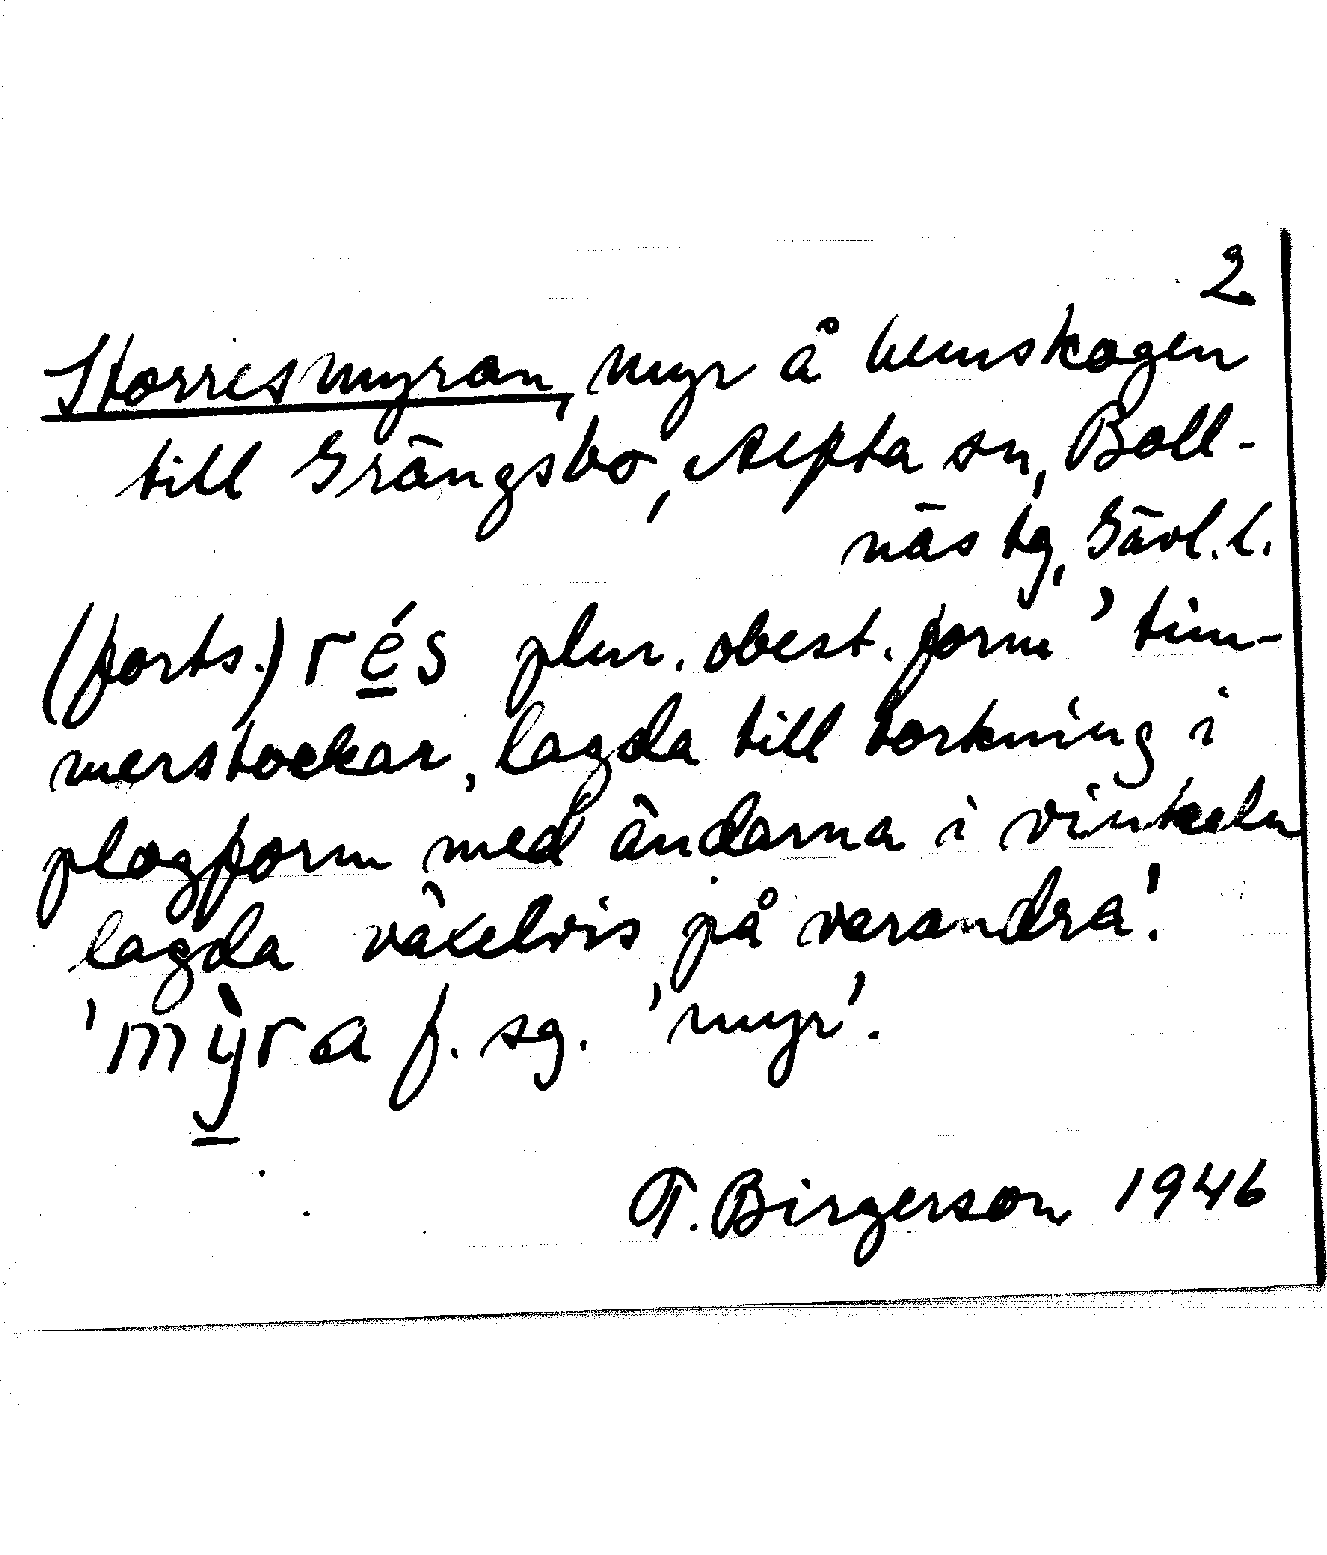 2.
Storresmyran, myr å hemskogen
till Grängsbo, Alfta sn, Boll-
näs tg, Gävl. l.
(forts.) rés plur. obest. form 'tim-
merstockar, lagda till torkning i
plogform med ändarna i vinkeln
lagda växelvis på varandra'.
'mỳra f. sg. 'myr'.
T. Birgerson 1946